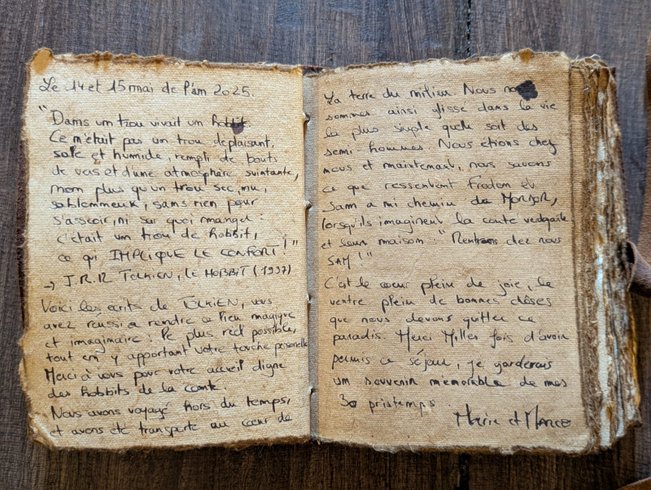 Le 14 et 15 mai de l'an 2025.
"Dans un trou vivait un hobbit.
Ce n'était pas un trou déplaisant,
sale et humide, rempli de bouts
de vers et d'une atmosphère suintante,
non plus qu'un trou sec, nu,
sablonneux, sans rien pour
s'asseoir, ni sur quoi manger :
c'était un trou de hobbit,
ce qui IMPLIQUE LE CONFORT !"
→ J.R.R TOLKIEN, LE HOBBIT (1937)
Voici les écrits de TOLKIEN, vous
avez réussi a rendre ce lieu magique
et imaginaire : le plus réel possible,
tout en y apportant votre touche personelle
Merci à vous pour votre accueil digne
des hobbits de la comté.
Nous avons voyagé hors du temps,
et avons été transporté au coeur de
La terre du milieu. Nous nous
sommes ainsi glissé dans la vie
la plus simple qu'elle soit des
semi hommes. Nous étions chez
nous et maintenant, nous savons
ce que ressentent Frodon et
Sam a mi chemin du MORDOR,
lorsqu'ils imaginent la comté verdoyante
et leur maison : "Rentrons chez nous
SAM !"
C'est le coeur plein de joie, le
ventre plein de bonnes choses
que nous devons quitter ce
paradis. Merci Milles fois d'avoir
permis ce séjour, je garderais
un souvenir mémorable de mes
30 printemps
Marie et